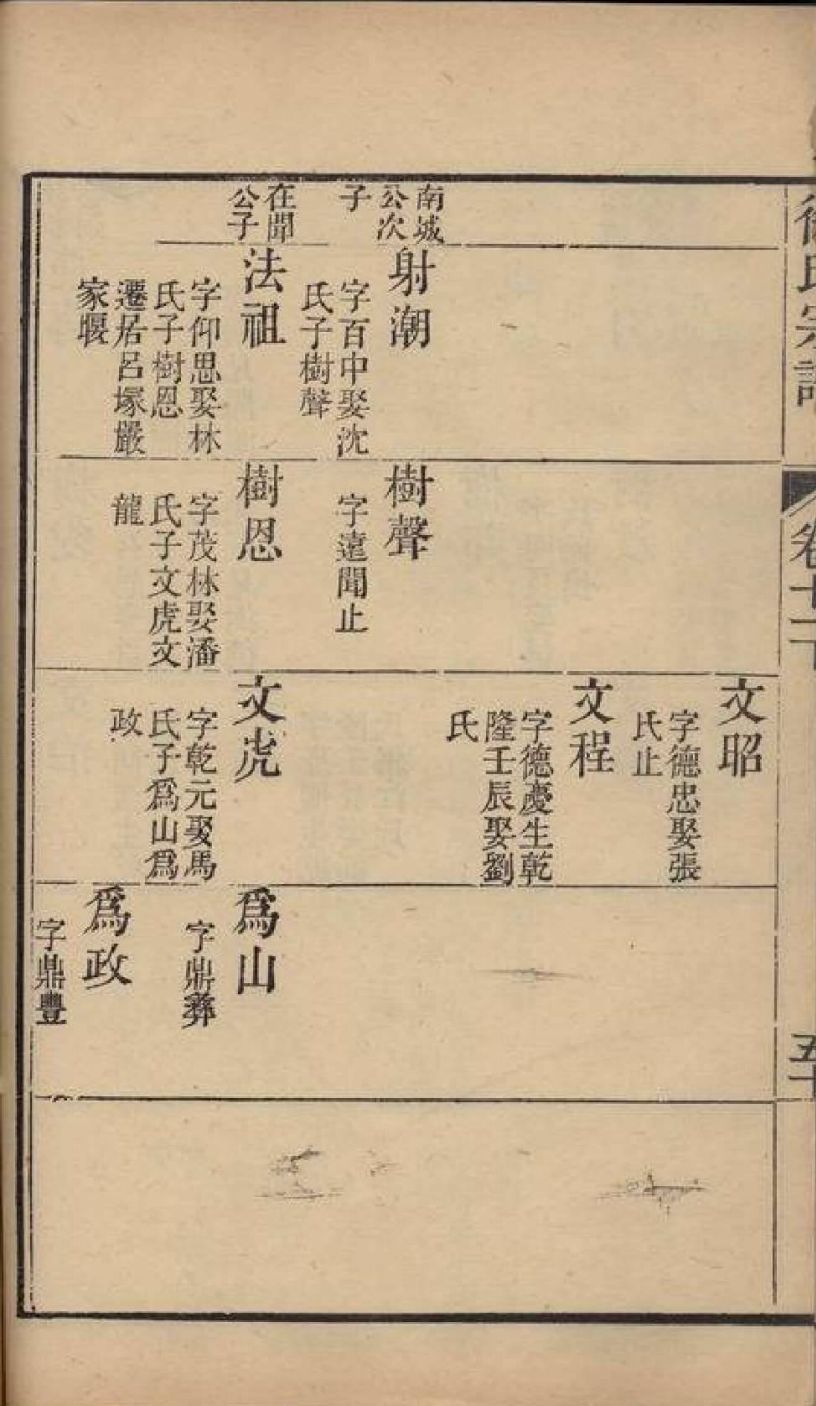 氏宗譜
卷十二
南城
公次
子
射潮
字百中娶沈
氏子樹聲
在聞
公子
法祖
字仰思娶林
氏子樹恩
遷居呂塚嚴
家堰
樹聲
字遠聞止
樹恩
字茂林娶潘
氏子文虎文
龍
文昭
字德忠娶張
氏止
文程
字德慶生乾
隆壬辰娶劉
氏
文虎
字乾元娶馬
氏子爲山爲
政
爲山
字鼎彝
爲政
字鼎豐